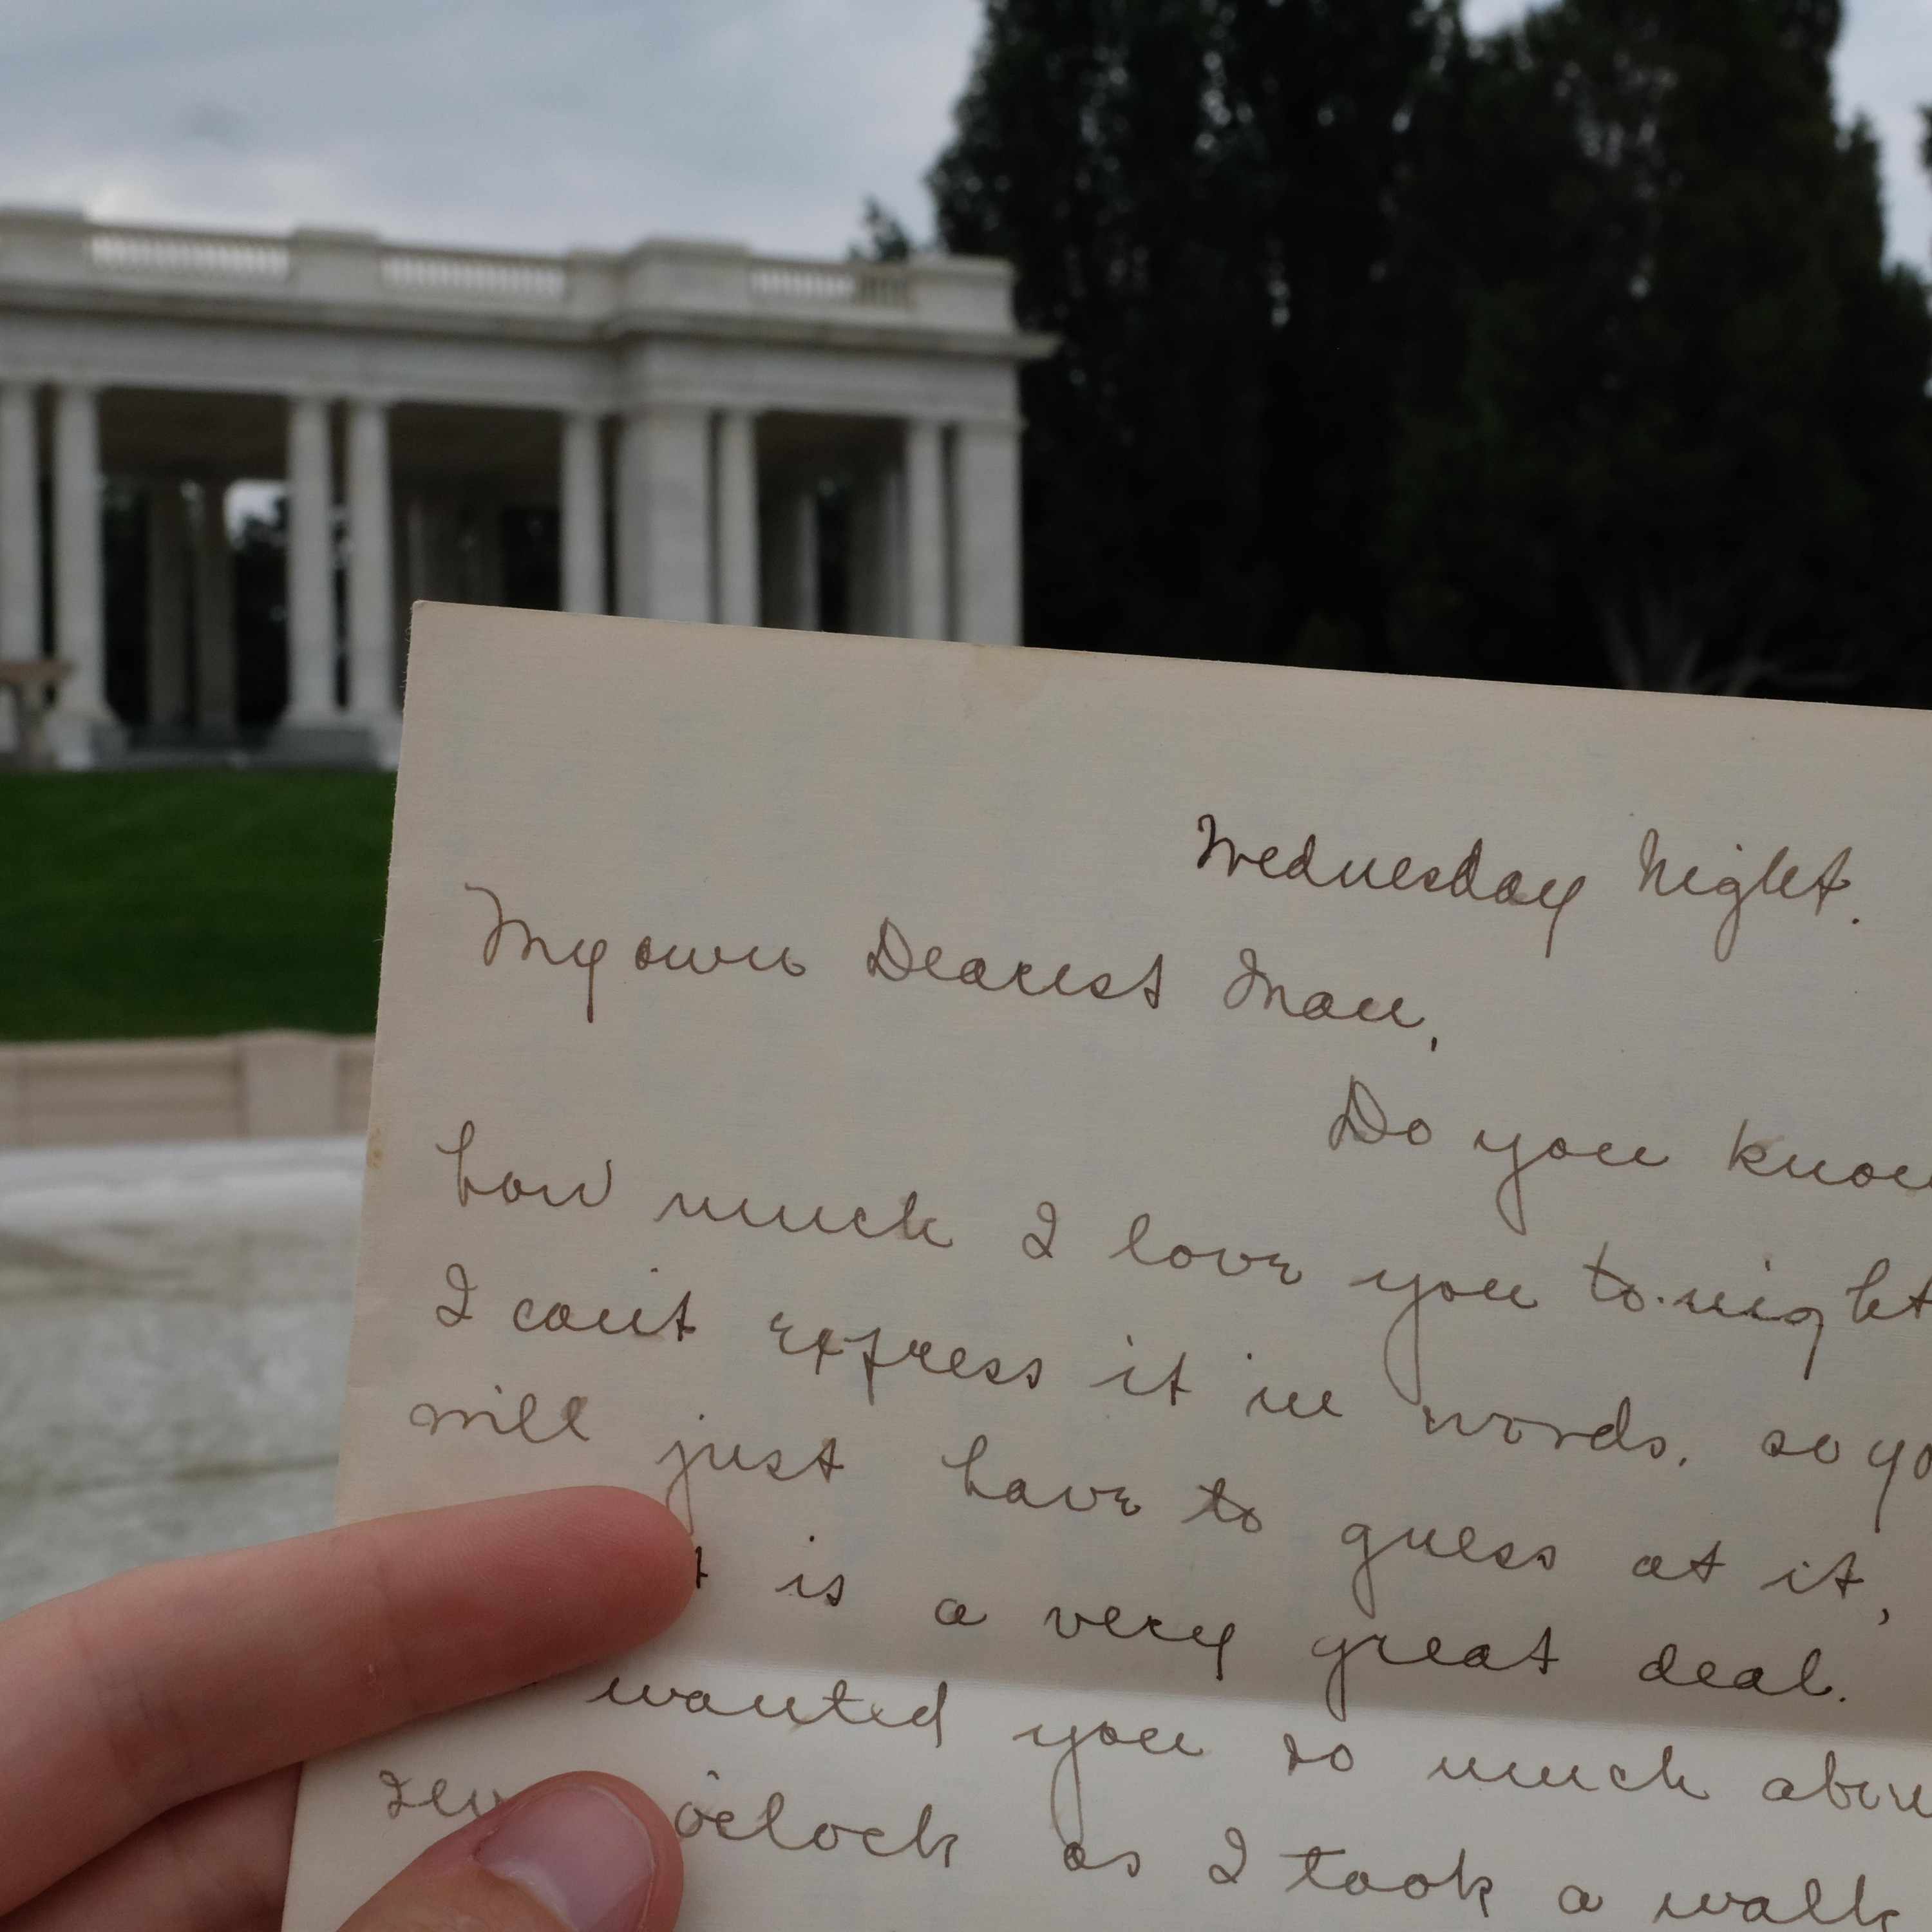 Wednesday Night.
My own Dearest Man,
Do you know
how much I love you to-night
I can't express it in words, so yo
will just have to guess at it,
t is a very great deal.
wanted you so much abou
sev o'clock as I took a walk